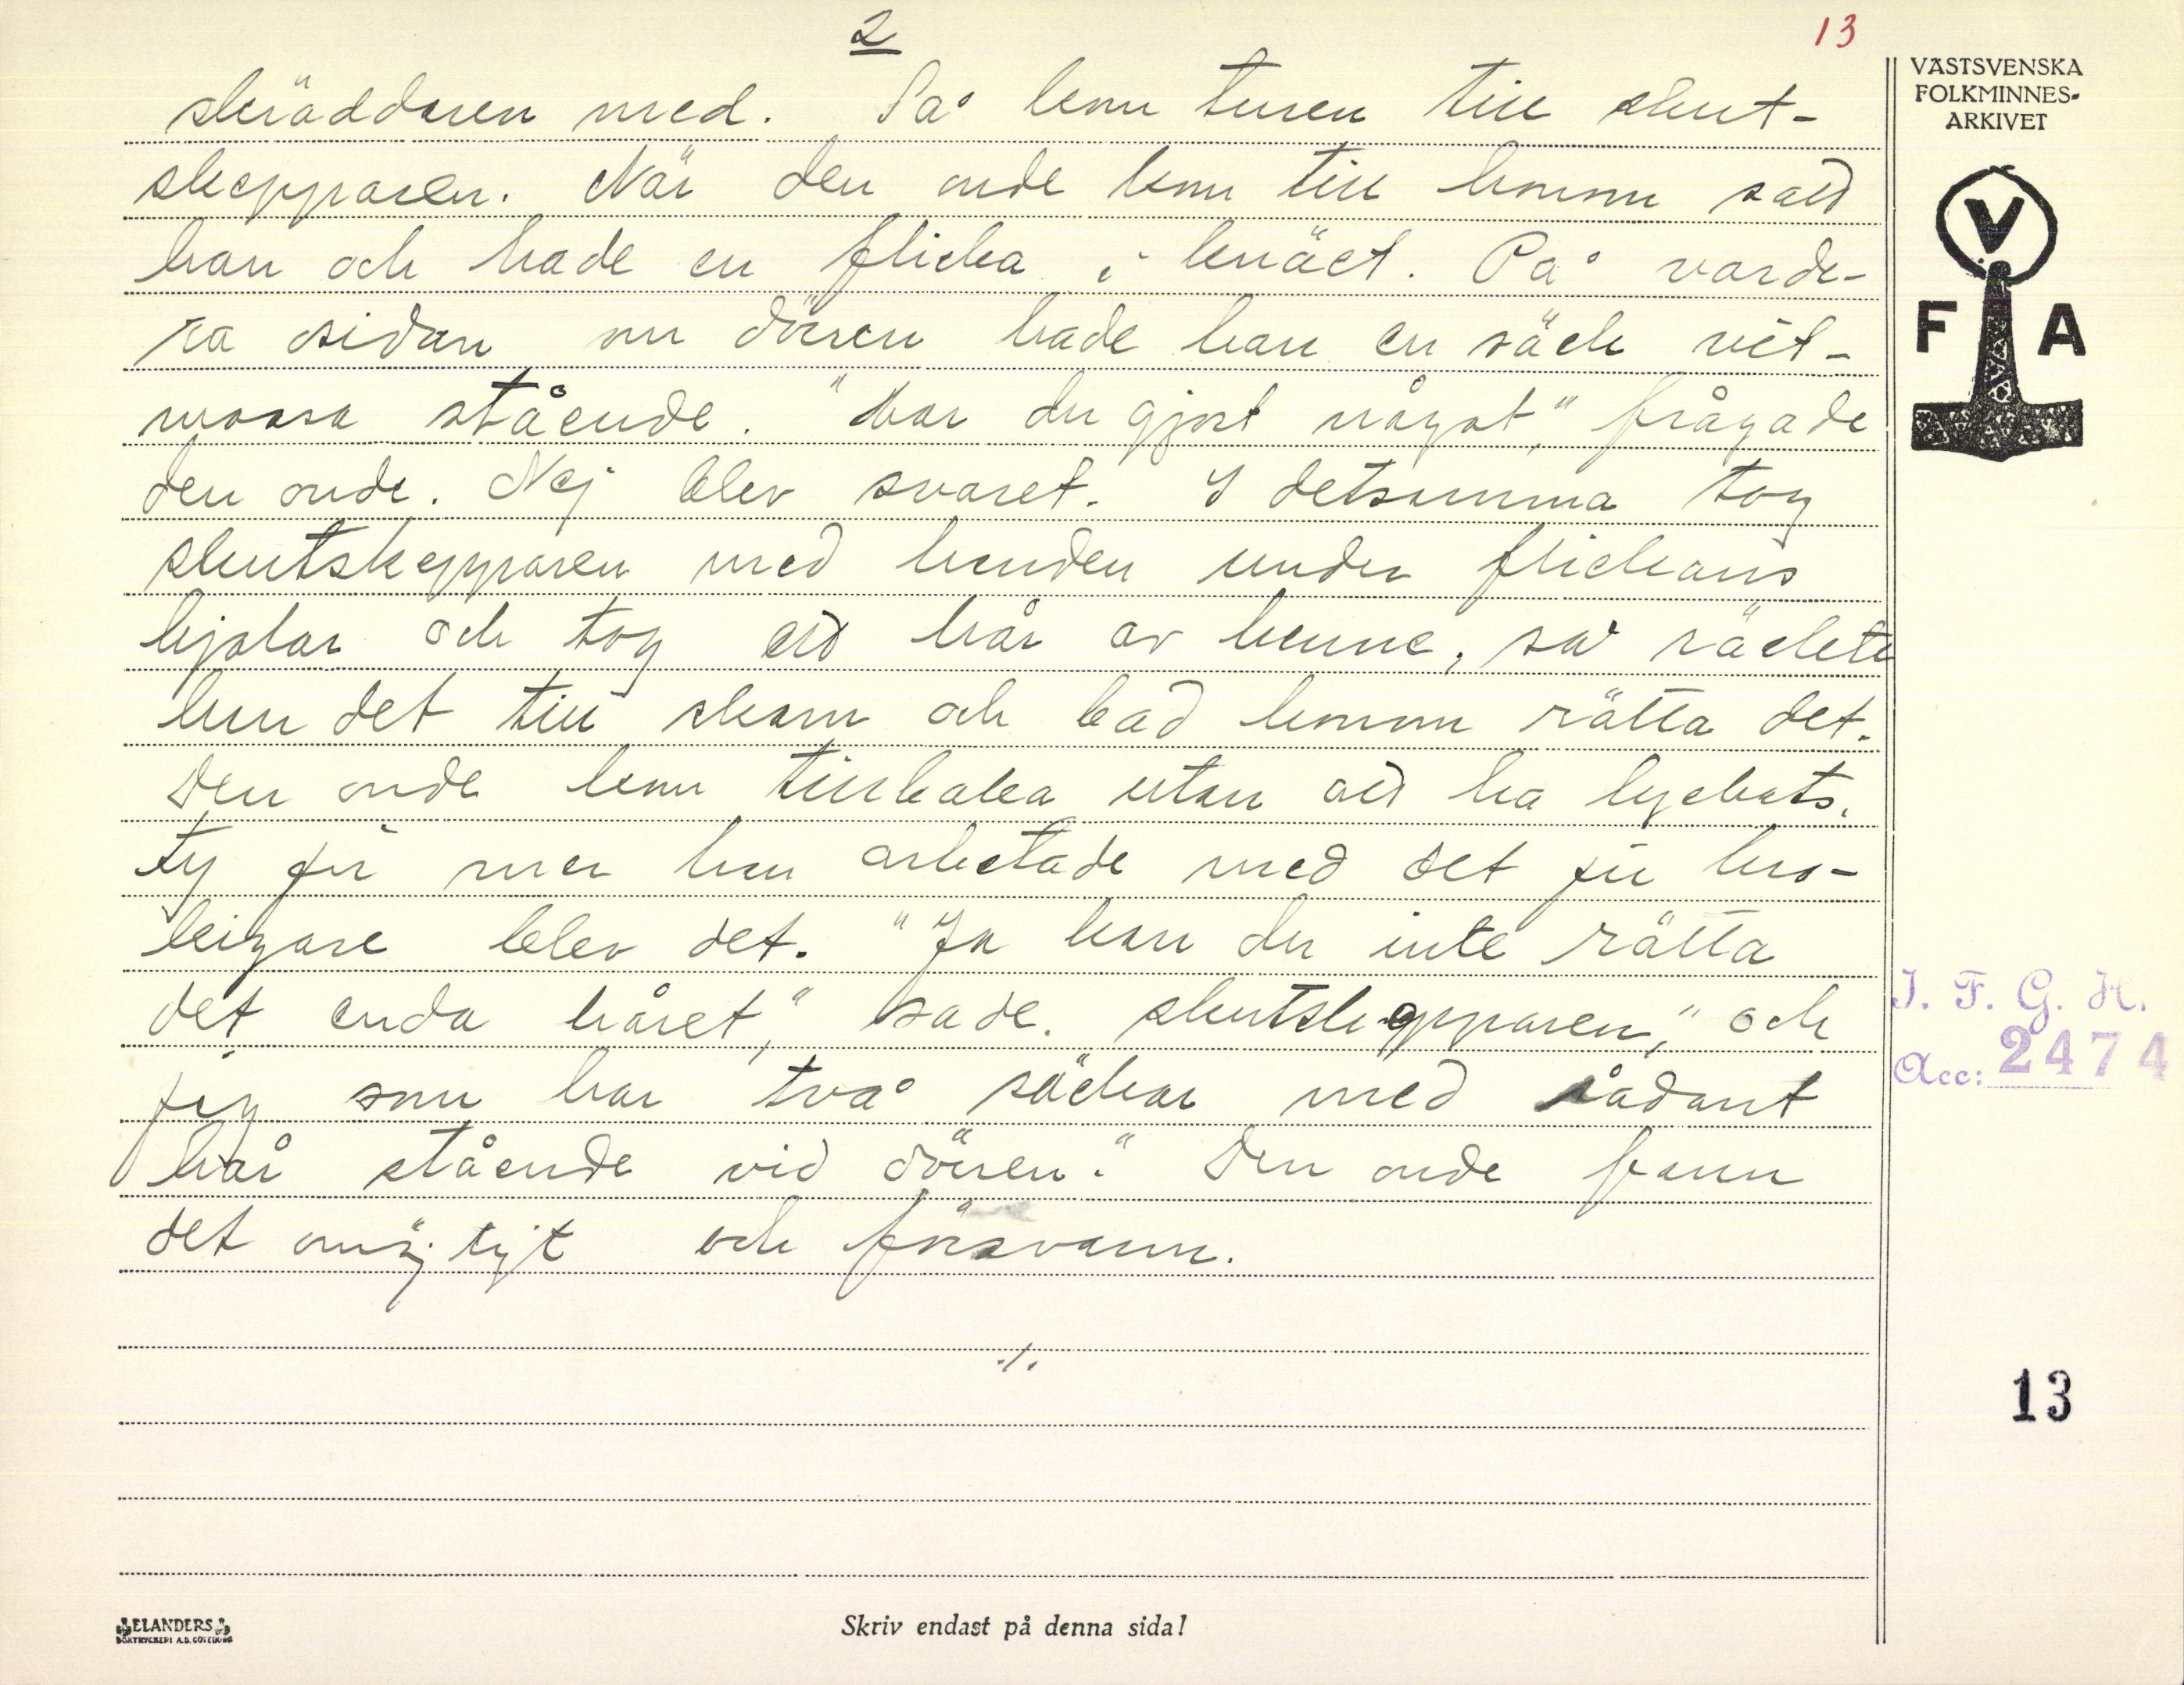 2
13
skräddaren med. Så kom turen till skut-
skepparen. När den onde kom till honom satt
han och hade en flicka i knäet. På varde-
ra sidan om dörren hade han en säck vit-
mossa stående. "Har du gjort något," frågade
den onde. Nej blev svaret. I detsamma tog
skutskepparen med handen under flickans
kjolar och tog ett hår av henne, så räckte
han det till skam och bad honom rätta det.
Den onde kom tillbaka utan att ha lyckats,
ty ju mer han arbetade med det ju kro-
kigare blev det. "Ja kan du inte rätta
det enda håret," sade skutskepparen, "och
jag som har två säckar med sådant
hår stående vid dörren." Den onde fann
det omöjligt och försvann.
./.
VÄSTSVENSKA
FOLKMINNES-
ARKIVET
V
F A
I. F. G. H.
Acc: 2474
13
ELANDERS
BOKTRYCKERI A.B. GÖTEBORG
Skriv endast på denna sida!